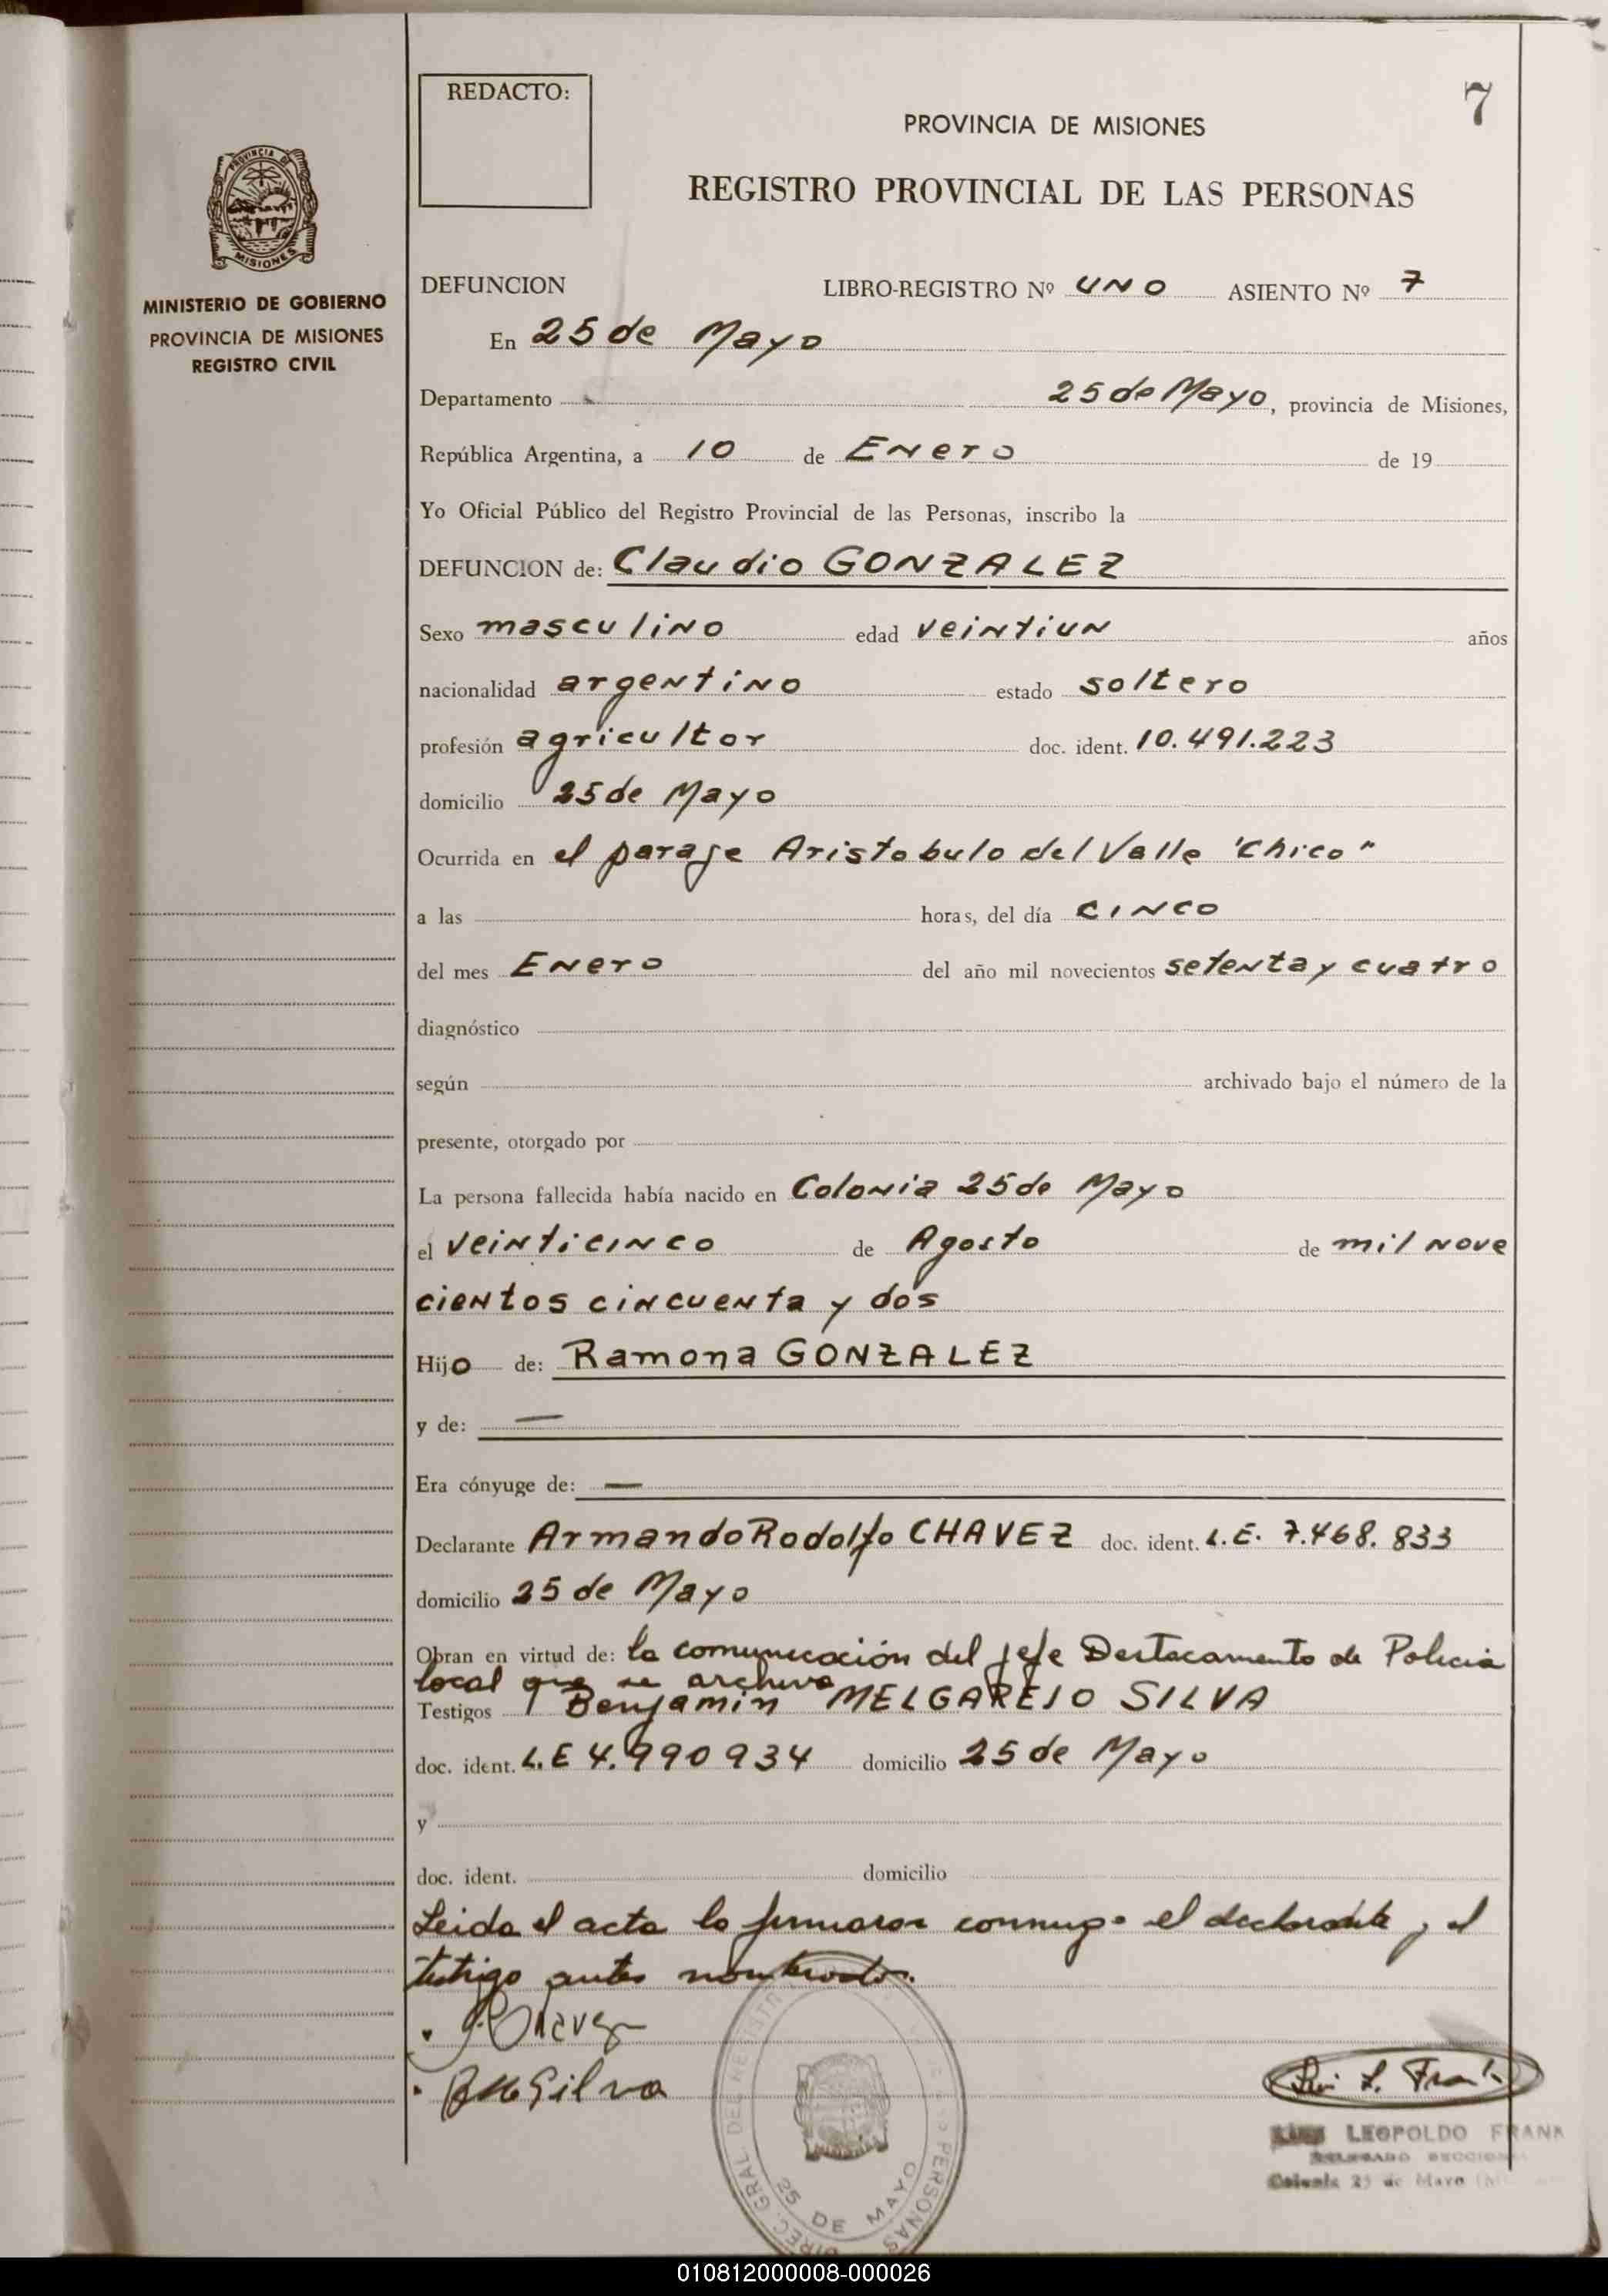 7
REDACTO:
PROVINCIA DE MISIONES
REGISTRO PROVINCIAL DE LAS PERSONAS
PROVINCIA DE
MISIONES
MINISTERIO DE GOBIERNO
PROVINCIA DE MISIONES
REGISTRO CIVIL
DEFUNCION LIBRO-REGISTRO Nº UNO ASIENTO Nº 7
En 25 de Mayo
Departamento 25 de Mayo, provincia de Misiones,
República Argentina, a 10 de Enero de 19
Yo Oficial Público del Registro Provincial de las Personas, inscribo la
DEFUNCION de: Claudio GONZALEZ
Sexo masculino edad veintiun años
nacionalidad argentino estado soltero
profesión agricultor doc. ident. 10.491.223
domicilio 25 de Mayo
Ocurrida en el paraje Aristobulo del Valle "Chico"
a las horas, del día cinco
del mes Enero del año mil novecientos setenta y cuatro
diagnóstico
según archivado bajo el número de la
presente, otorgado por
La persona fallecida había nacido en Colonia 25 de Mayo
el veinticinco de Agosto de mil nove
cientos cincuenta y dos
Hijo de: Ramona GONZALEZ
y de: —
Era cónyuge de: —
Declarante Armando Rodolfo CHAVEZ doc. ident. L.E. 7.468.833
domicilio 25 de Mayo
Obran en virtud de: la comunicación del jefe Destacamento de Policia
local que se archiva
Testigos Benjamin MELGAREJO SILVA
doc. ident. L.E 4.990934 domicilio 25 de Mayo
y
doc. ident. domicilio
Leida el acta la firmaron conmigo el declarante y el
testigo antes nombrados.
Chavez
Silva
Luis L. Frank
LEOPOLDO FRANK
Colonia 25 de Mayo
DIREC. GRAL. DEL REGISTRO PERSONAS
25 DE MAYO
010812000008-000026